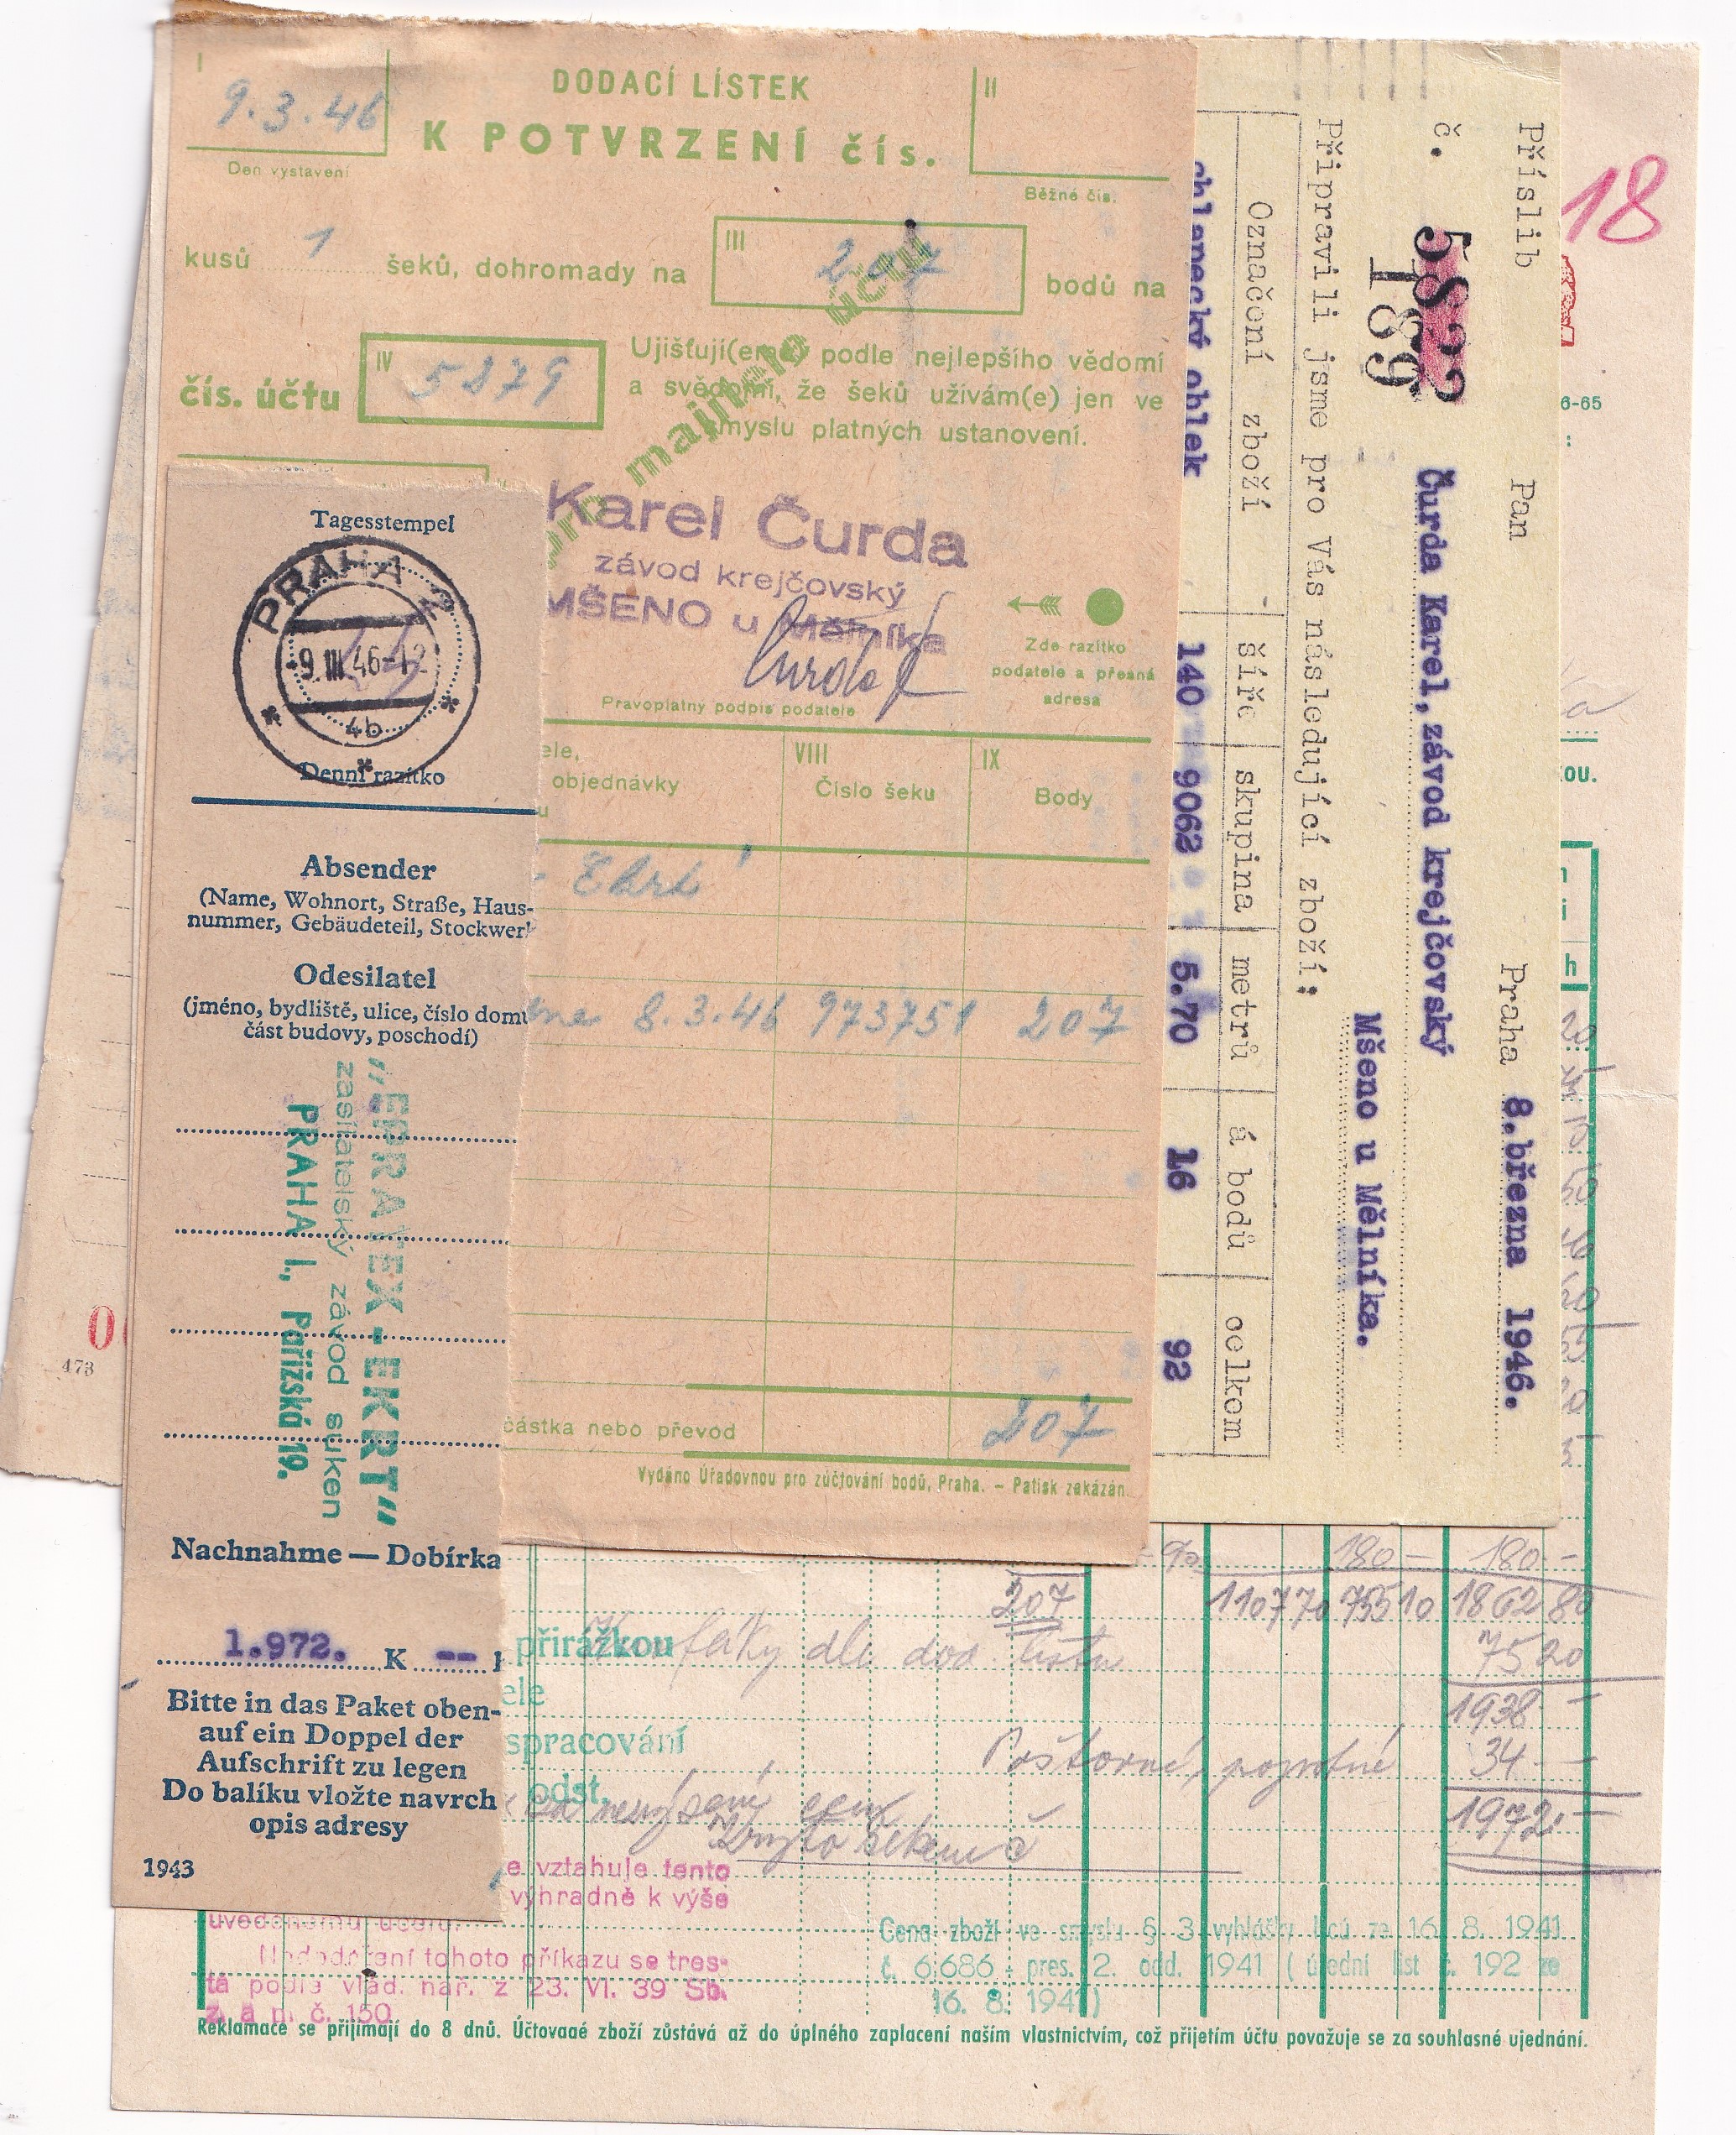 I
9.3.46
Den vystavení
DODACÍ LÍSTEK
K POTVRZENÍ čís.
II
Běžné čís.
kusů 1 šeků, dohromady na
III
207
bodů na
čís. účtu
IV
5879
Ujišťuji(eme) podle nejlepšího vědomí
a svědomí, že šeků užívám(e) jen ve
smyslu platných ustanovení.
pro majitele účtu
Karel Čurda
závod krejčovský
MŠENO u Mělníka
Pravoplatný podpis podatele
Zde razítko
podatele a přesná
adresa
objednávky
VIII
Číslo šeku
IX
Body
8.3.46 973751 207
částka nebo převod
207
Vydáno Úřadovnou pro zúčtování bodů, Praha. – Patisk zakázán.
Tagesstempel
PRAHA
-9.III.46-12
4b
Denní razítko
Absender
(Name, Wohnort, Straße, Haus-
nummer, Gebäudeteil, Stockwerk
Odesilatel
(jméno, bydliště, ulice, číslo domu
část budovy, poschodí)
„EPRATEX - EKRT"
zasilatelský závod suken
PRAHA I., Pařížská 19.
Nachnahme — Dobírka
1.972. K --
Bitte in das Paket oben-
auf ein Doppel der
Aufschrift zu legen
Do balíku vložte navrch
opis adresy
1943
Příslib Pan Praha 8.března 1946.
č. 5822
189
Čurda Karel, závod krejčovský
Mšeno u Mělníka.
Připravili jsme pro Vás následující zboží:
Označení zboží šíře skupina metrů á bodů celkem
chlapecký oblek 140 9062 5.70 16 92
18
6-65
473
180 – 180 –
207
11077 0 755 10 1862 80
přirážkou
dle dod. listu
75 20
1938 –
spracování
Poštovné,
34 –
odst.
1972 –
e vztahuje tento
výhradně k výše
uvedenému účelu.
Nedodržení tohoto příkazu se tres-
tá podle vlád. nař. z 23. VI. 39 Sb.
z. a n. č. 150
Cena zboží ve smyslu § 3 vyhlášky ze 16. 8. 1941
č. 6.686 - pres. 2. odd. 1941 ( úřední list č. 192 ze
16. 8. 1941)
Reklamace se přijímají do 8 dnů. Účtované zboží zůstává až do úplného zaplacení naším vlastnictvím, což přijetím účtu považuje se za souhlasné ujednání.